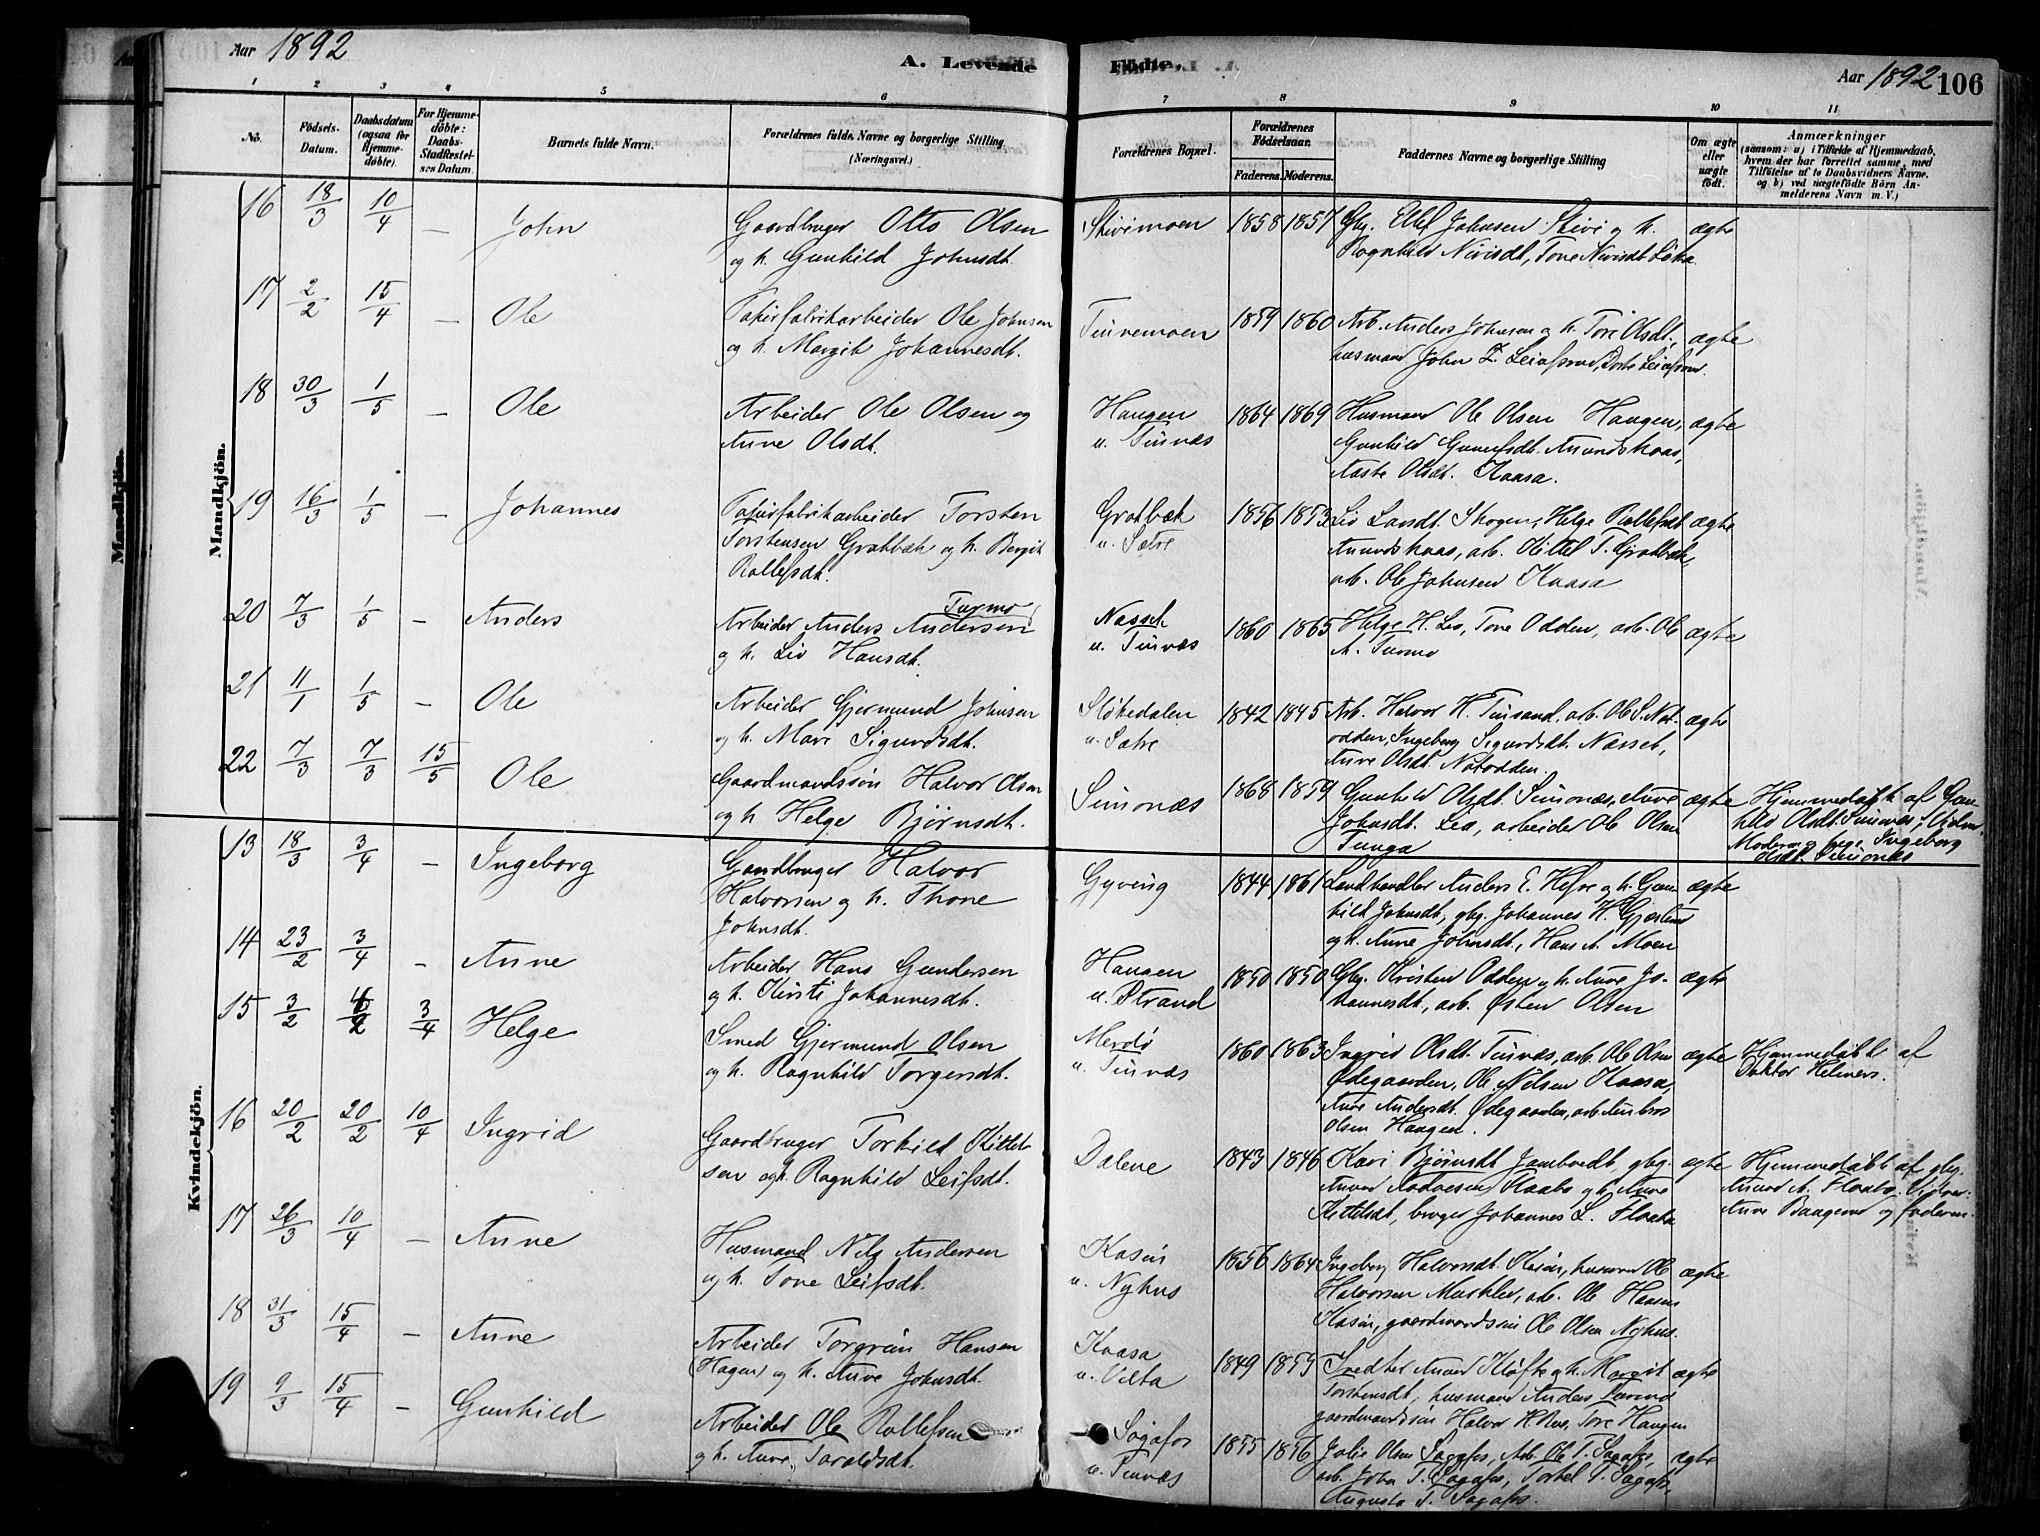 Aar 1892
A. Levende Fødte.
Aar 1892 106
1 2 3 4 5 6 7 8 9 10 11
No.
Fødsels-
Datum.
Daabsdatum
(ogsaa for
Hjemme-
døbte).
For Hjemme-
døbte:
Daabs-
Stadfæstel-
ses Datum.
Barnets fulde Navn.
Forældrenes fulde Navne og borgerlige Stilling
(Næringsvei.)
Forældrenes Bopæl.
Forældrenes
Fødselsaar.
Faderens. Moderens.
Faddernes Navne og borgerlige Stilling
Om ægte
eller
uægte
født.
Anmærkninger
(saasom: a) i Tilfælde af Hjemmedaab,
hvem der har forrettet samme, med
Tilføielse af to Daabsvidners Navne.
og b) ved uægtefødte Børn An-
melderens Navn m. V.)
Mandkjøn.
16 18/3 10/4 — John Gaardbruger Otto Olsen Skivimoen 1858 1857 Gbg. Ellef Johnsen Skivi og h. ægte
og h. Gunhild Johnsdt. Ragnhild Nirisdt, Tone Nirisdt
17 2/2 15/4 — Ole Papirfabrikarbeider Ole Johnsen Tinnemoen 1859 1860 Arb. Anders Johnsen og h. Tore Olsdt., ægte
og h. Margit Johannesdt. husmand John
18 30/3 1/5 — Ole Arbeider Ole Olsen og Haugen 1864 1869 Husmand Ole Olsen Haugen, ægte
Anne Olsdt. u. Tinnæs Gunhild Gunulfsdt. Amundskaas,
Aaste Olsdt. Kaasa.
19 16/3 1/5 — Johannes Papirfabrikarbeider Torsten Grotbæk 1856 1853 Liv Larsdt. Skogen, Helge Rollefsdt ægte
Torstensen Grotbæk og h. Bergit u. Sætre Amundskaas, arb. Kittel T. Grotbæk,
Rollefsdt. arb. Ole Johnsen Kaasa
20 7/3 1/5 — Anders Arbeider Anders Andersen Turmo Næsset 1860 1865 Helge H. Lev, Tone Odden, arb. Ole ægte
og h. Liv Hansdt. u. Tinnæs A. Turmo
21 11/1 1/5 — Ole Arbeider Gjermund Johnsen Slökedalen 1842 1845 Arb. Halvor H. Tinsand, arb. Ole S. Not- ægte
og h. Mari Sigurdsdt. u. Sætre odden, Ingeborg Sigurdsdt. Næsset,
Anne Olsdt. Notodden.
22 7/3 7/3 15/5 Ole Gaardmandssøn Halvor Olsen Simonæs 1868 1859 Gunhild Olsdt. Simonæs, Anne ægte Hjemmedøbt af Gun-
og h. Helge Bjørnsdt. Johnsdt. Lia, arbeider Ole Olsen hild Olsdt. Simonæs; Vidn.
Tunga Moderen og Ingeborg
Olsdt. Simonæs
Kvindekjön.
13 18/3 3/4 — Ingeborg Gaardbruger Halvor Gyving 1844 1861 Landhandler Anders E. Hefre og h. Gun- ægte
Halvorsen og h. Thone hild Johnsdt, gbg. Johannes H.
Johnsdt. og h. Anne Johnsdt., Hans A. Moen
14 23/2 3/4 — Anne Arbeider Hans Gundersen Haugen 1850 1850 Gbg. Kristen Odden og h. Anne Jo- ægte
og h. Kirsti Johannesdt. u. Strand hannesdt, arb. Østen Olsen
15 3/2 3/4 Helge Smed Gjermund Olsen Merdø 1860 1863 Ingrid Olsdt. Tinnæs, arb. Ole Olsen ægte Hjemmedøbt af
og h. Ragnhild Torgersdt. u. Tinnæs Ødegaarden, Ole Nilsen Kaasa, Doktor Helmers.
Anne Andersdt. Ødegaarden, arb. Ambros
Olsen Haugen.
16 20/2 20/2 10/4 Ingrid Gaardbruger Torkild Kittel- Dalene 1843 1846 Kari Bjørnsdt. gbg. ægte Hjemmedøbt af gbg.
sen og h. Ragnhild Leifsdt. Amund Flaabø og h. Anne Amund A. Flaabø. Vidner:
Kittelsdt, bruger Johannes L. Flaata Anne og faderen.
17 26/3 10/4 — Anne Husmand Nils Andersen Kasin 1856 1864 Ingeborg Halvorsdt. Kasin, husmand Ole ægte
og h. Tone Leifsdt. u. Nyhus Halvorsen Murklev, arb. Ole Hansen
Kasin, gaardmandssøn Ole Olsen Nyhus.
18 31/3 15/4 — Anne Arbeider Torgrim Hansen Kaasa 1849 1855 Amund Kløfte og h. Margit ægte
(Hagen) og h. Anne Johnsdt. u. Villa Torstensdt, husmand Anders
gaardmandssøn Halvor Tore Haugen
19 9/3 15/4 — Gunhild Arbeider Ole Rollefsen Sagafos 1855 1856 Julie Olsen Sagafos, Arb. Ole T. Sagafos, ægte
og h. Anne Taraldsdt. u. Tinnæs arb. John T. Sagafos, Torkel T. Sagafos,
Augusta T. Sagafos.